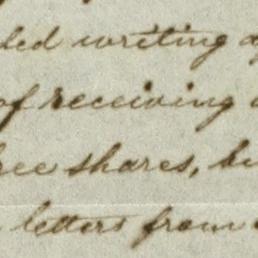 ded writing
of receiving
ree shares,
letters from